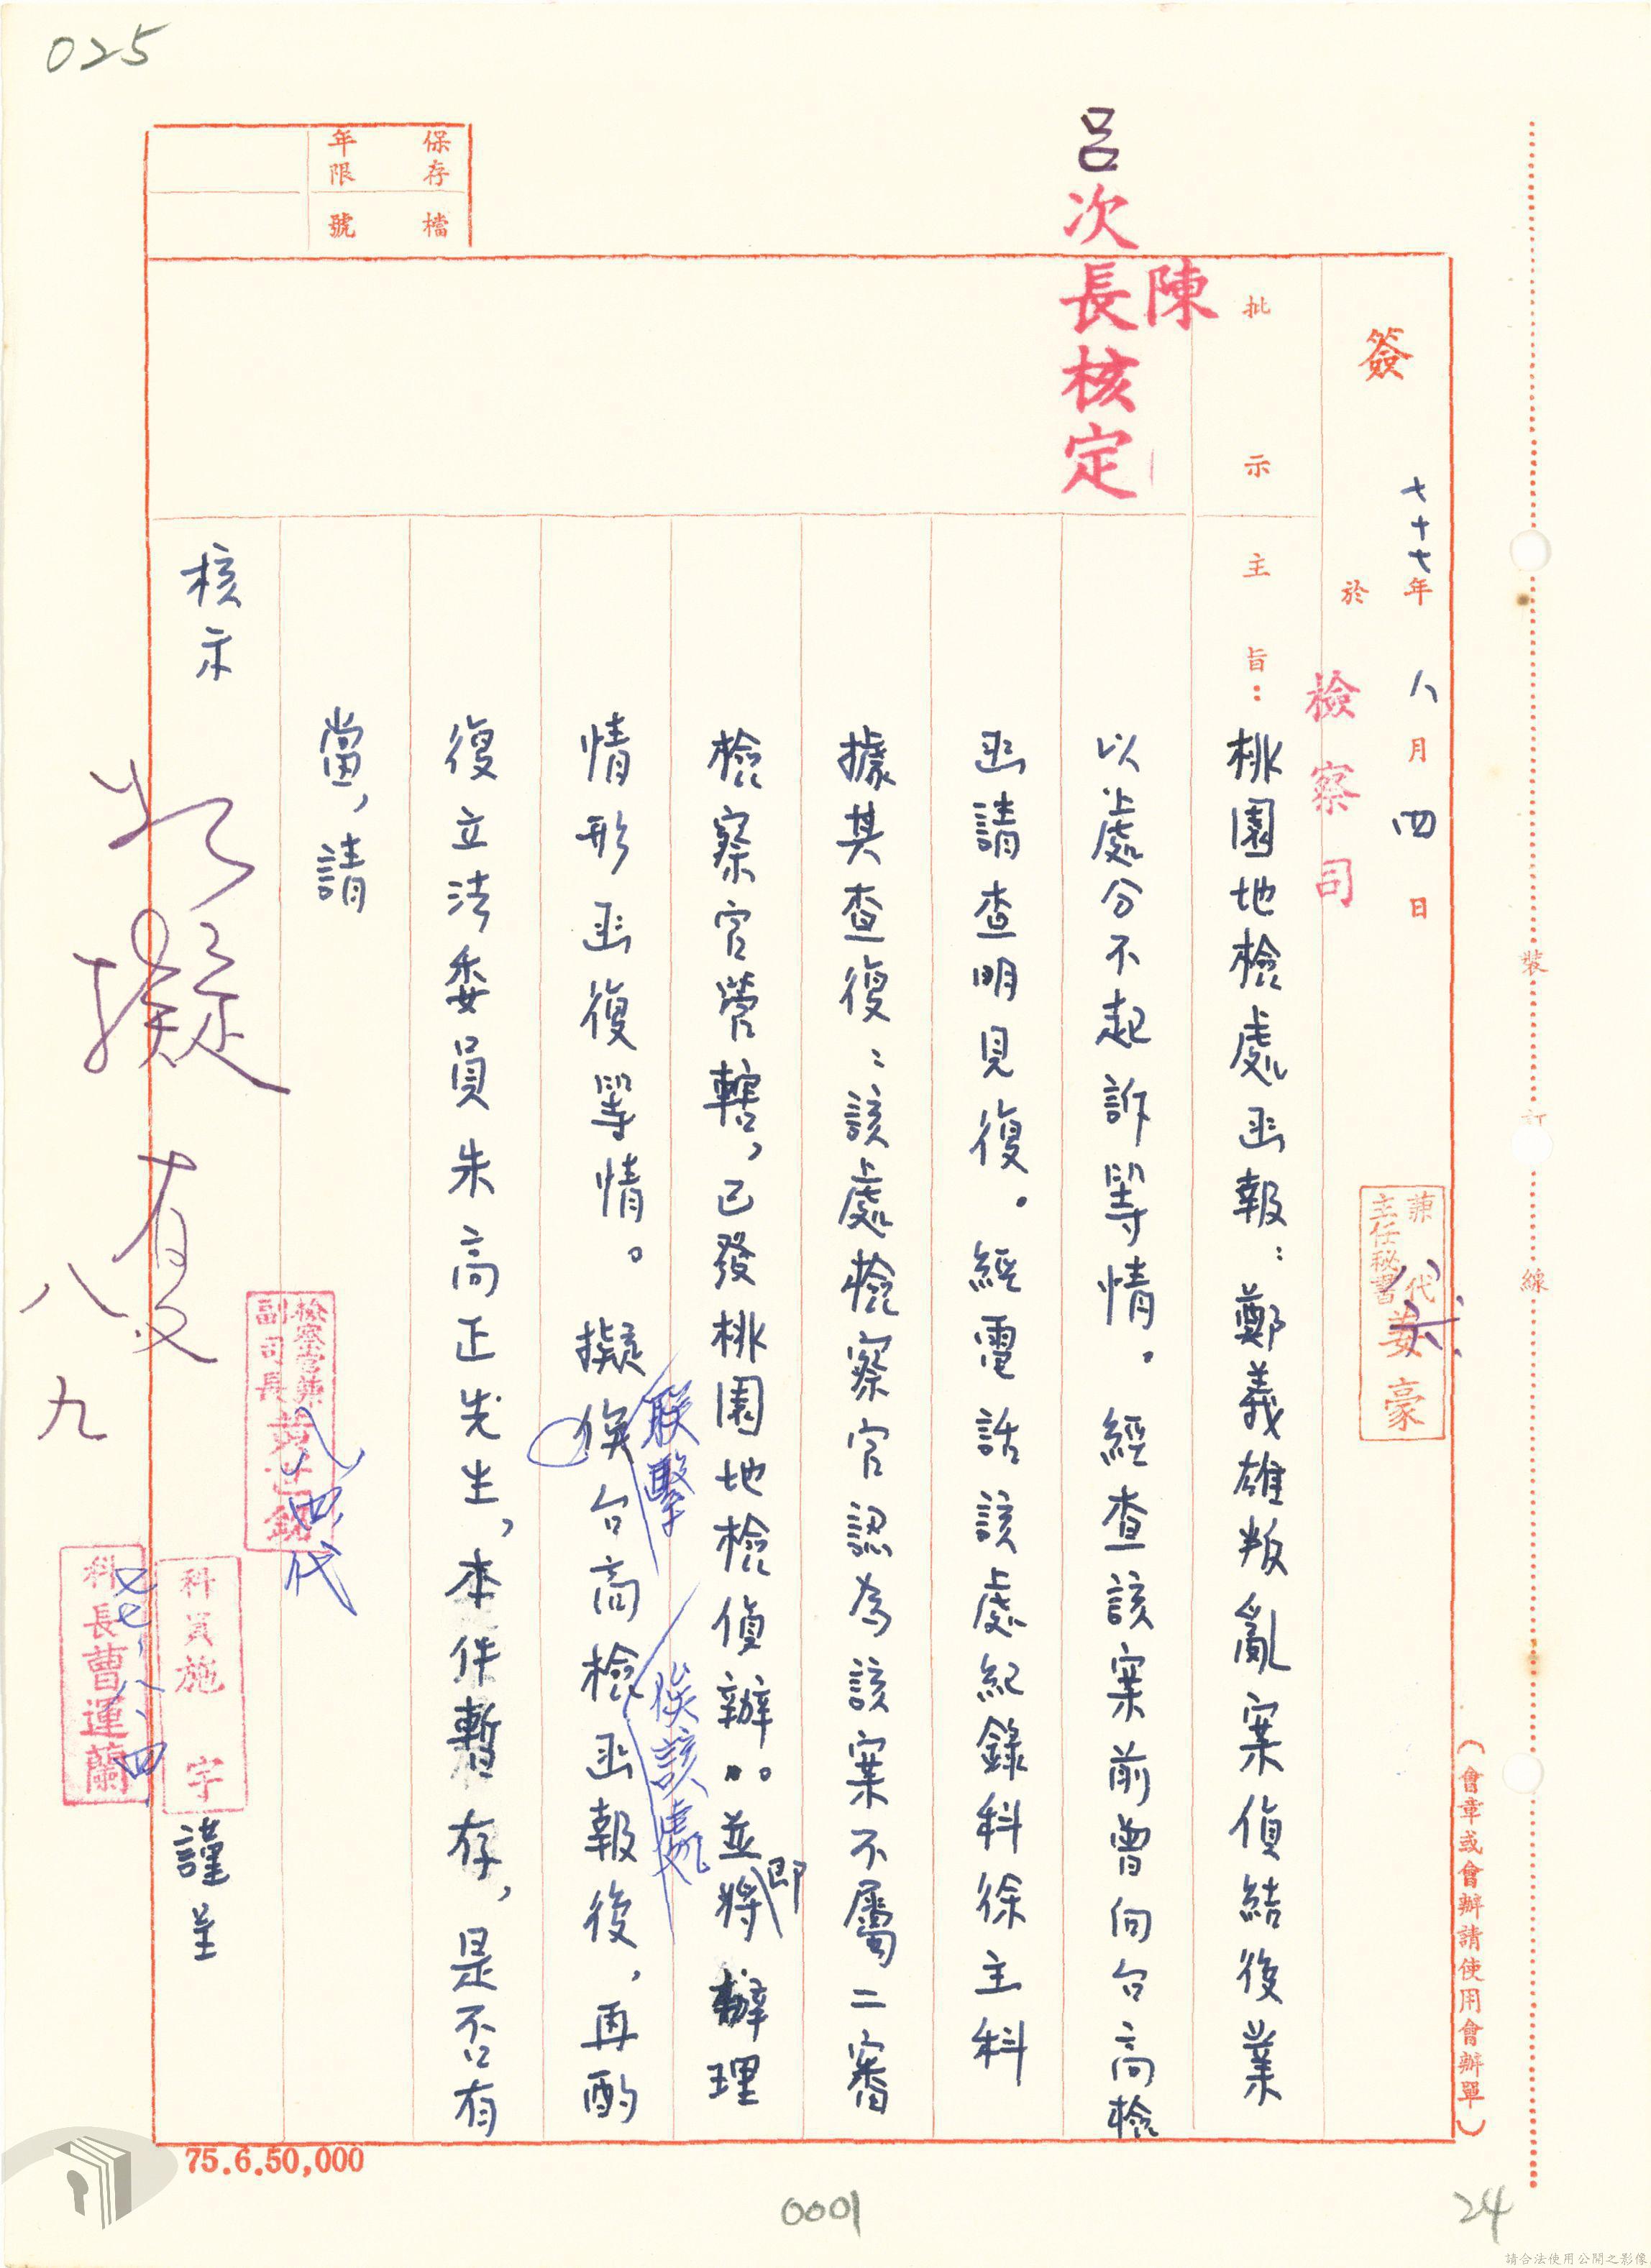 025
保存年限
檔號
呂次長核定
陳
簽
七十七年八月四日
於
檢察司
兼代主任秘書姜豪
八六
批示
主旨：桃園地檢處函報：鄭義雄叛亂案偵結後業
以處分不起訴等情。經查該案前曾向台高檢
函請查明見復。經電話該處紀錄科徐主科
據其查復：該處檢察官認為該案不屬二審
檢察官管轄，已發桃園地檢偵辦。並將辦理
即
情形函復等情。擬俟台高檢函報後，再酌
聯繫
俟該處
復立法委員朱高正先生，本件暫存，是否有
當，請
核示
如擬
八九
檢察官兼副司長
八四代
科員施宇
謹呈
科長曹運蘭
七七、八、四
裝訂線
（會章或會辦請使用會辦單）
75.6.50,000
0001
24
請合法使用公開之影像